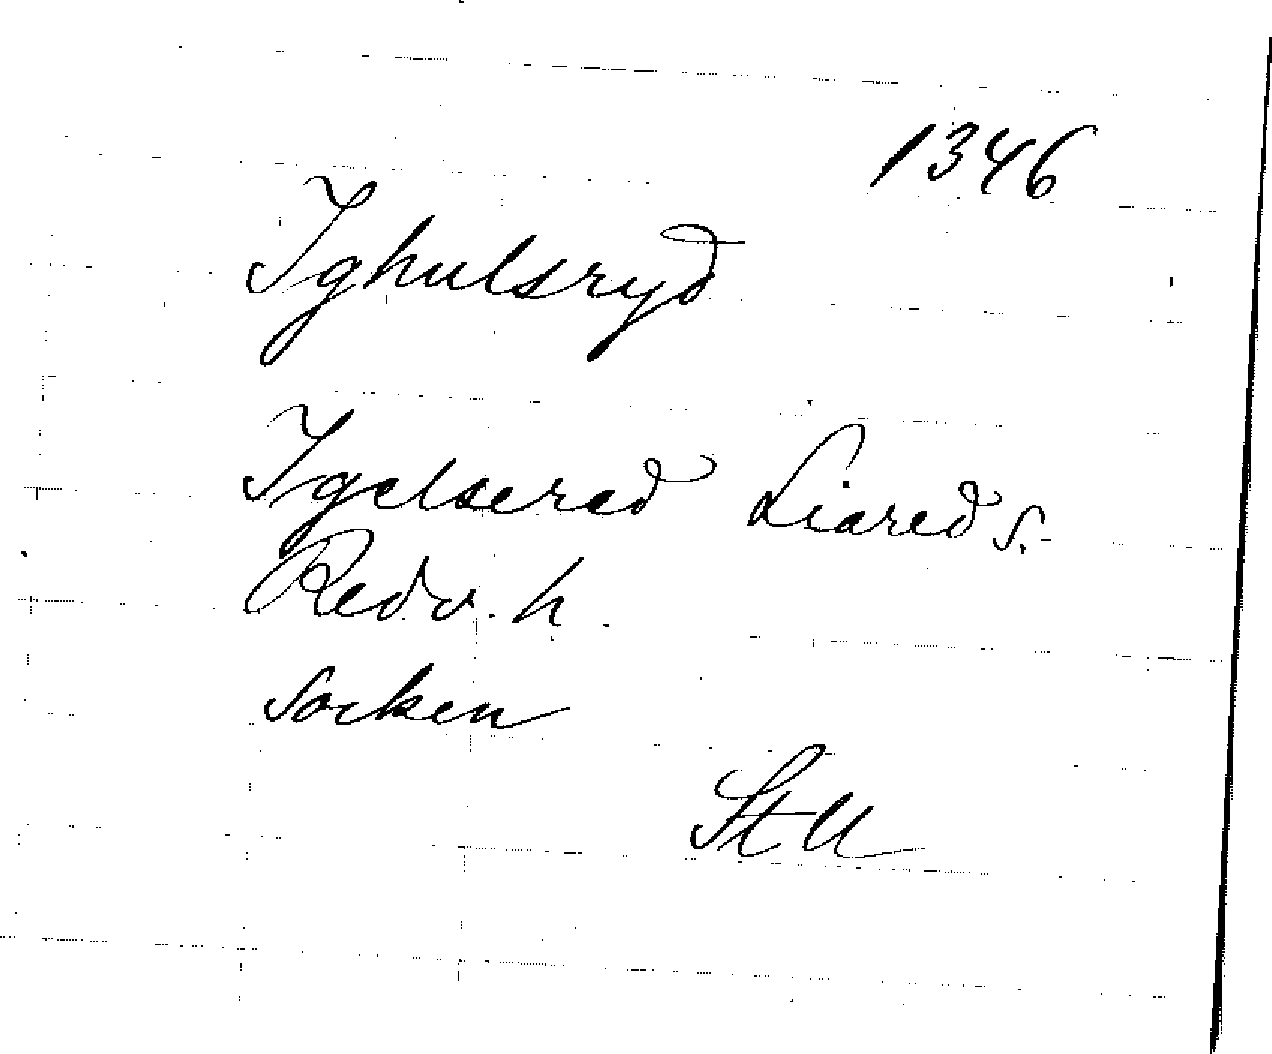 1346
Ighulsryd
Igelserad Liared s.
Redv. h.
Socken
St U